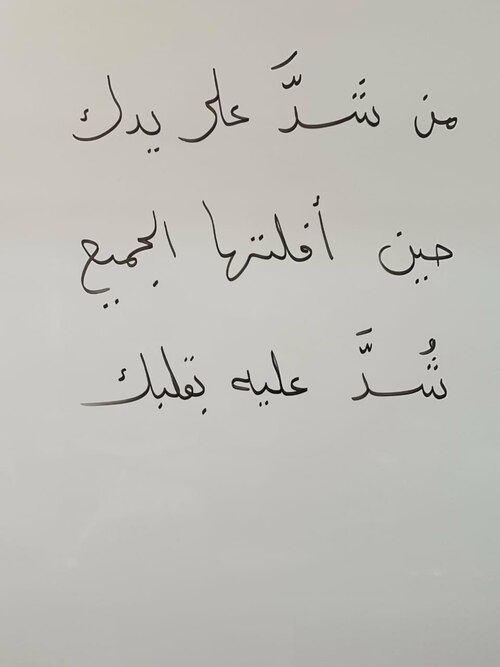 من شدَّ على يدك
حين أفلتها الجميع
شُدَّ عليه بقلبك